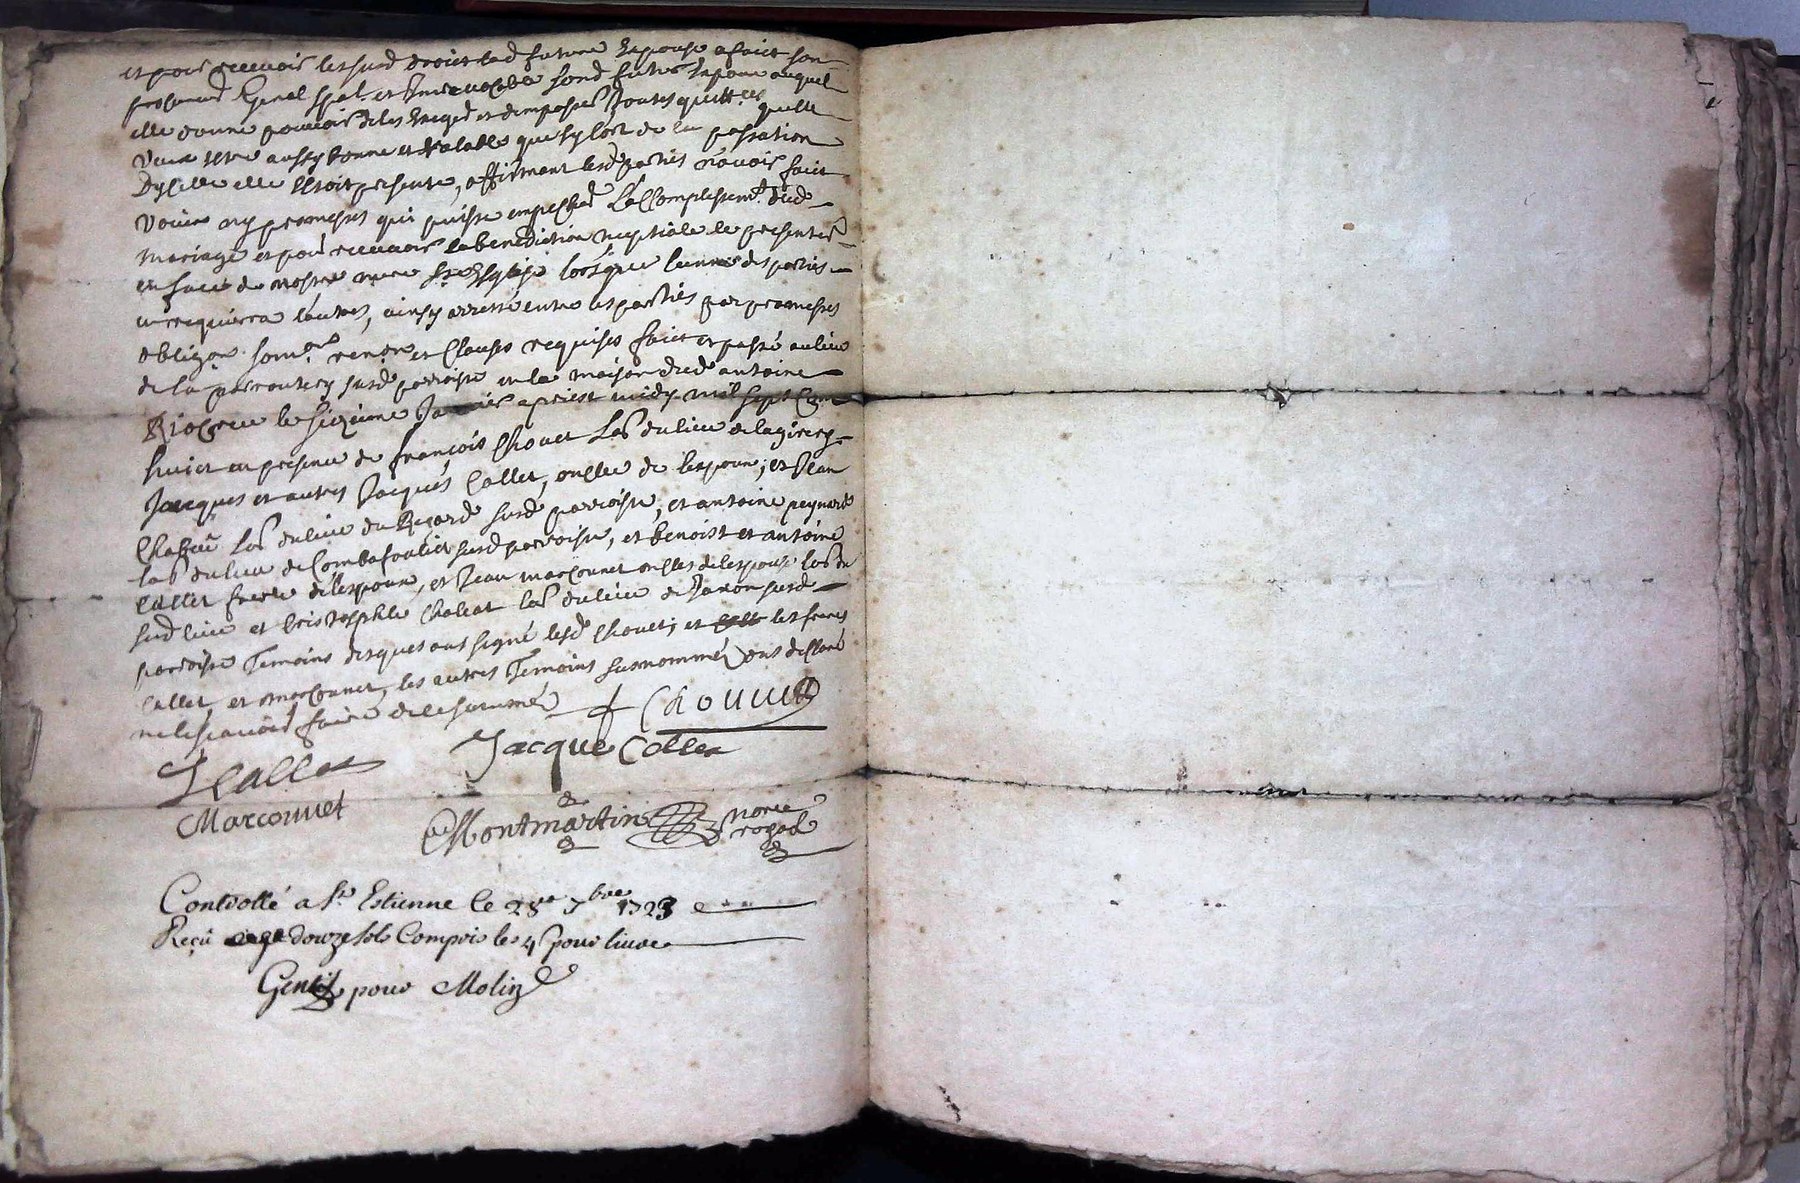 et pour recevoir lesusd droict lad future Espouse a faict son
procureur Gnral spal. et Irrevocable sond futur Espoux auquel
elle donne pouvoir de les Exiger et den passer Toutes quitt.ces quelle
veux estre aussy bonne et valable que sy lors de la passation
Dycelle elle Estoit presente, affirmant lesd parties n'avoir faict
voeux ny promesses qui puisse empecher L'accomplissemt. dud
mariage et pour recevoir la benediction nuptiale se presenter
en face de nostre mere Ste Esglise lorsque lunne des parties
en requierra l'autre, ainsy arresté entre les parties par promesses
obligon. soumon renon et Clauses requises faict et passé au lieu
de la susd parroisse en la maison dud antoine
le sizieme Janvier apres midy mil sept Cent
huict en presence de françois Chovet Lab du lieu de
Jacques et autres Jacques Collet, oncle de lespoux, et Jean
Lab du lieu du susd parroisse, et antoine peynard
lab du lieu de Combafoulier susd parroisse, et benoist et antoine
Collet frere de lespoux, et Jean marconnet oncles de lespouse lab du
susd lieu et Cristosphle Chaleat lab du lieu de Janon susd
parroisse Temoins desquels ont signé lesd Chovet, et les freres
Collet, et marconnet, les autres Temoins susnommés ont desclaré
ne le sçavoir faire de ce sommés Chovet
Jacque Collet
J Collet
Marconnet
Montmartin nore
royal
Controllé a St. Estienne le 28e 7bre 1723
Reçû douze sols Compris les 4s pour livre
Gentil pour Molin